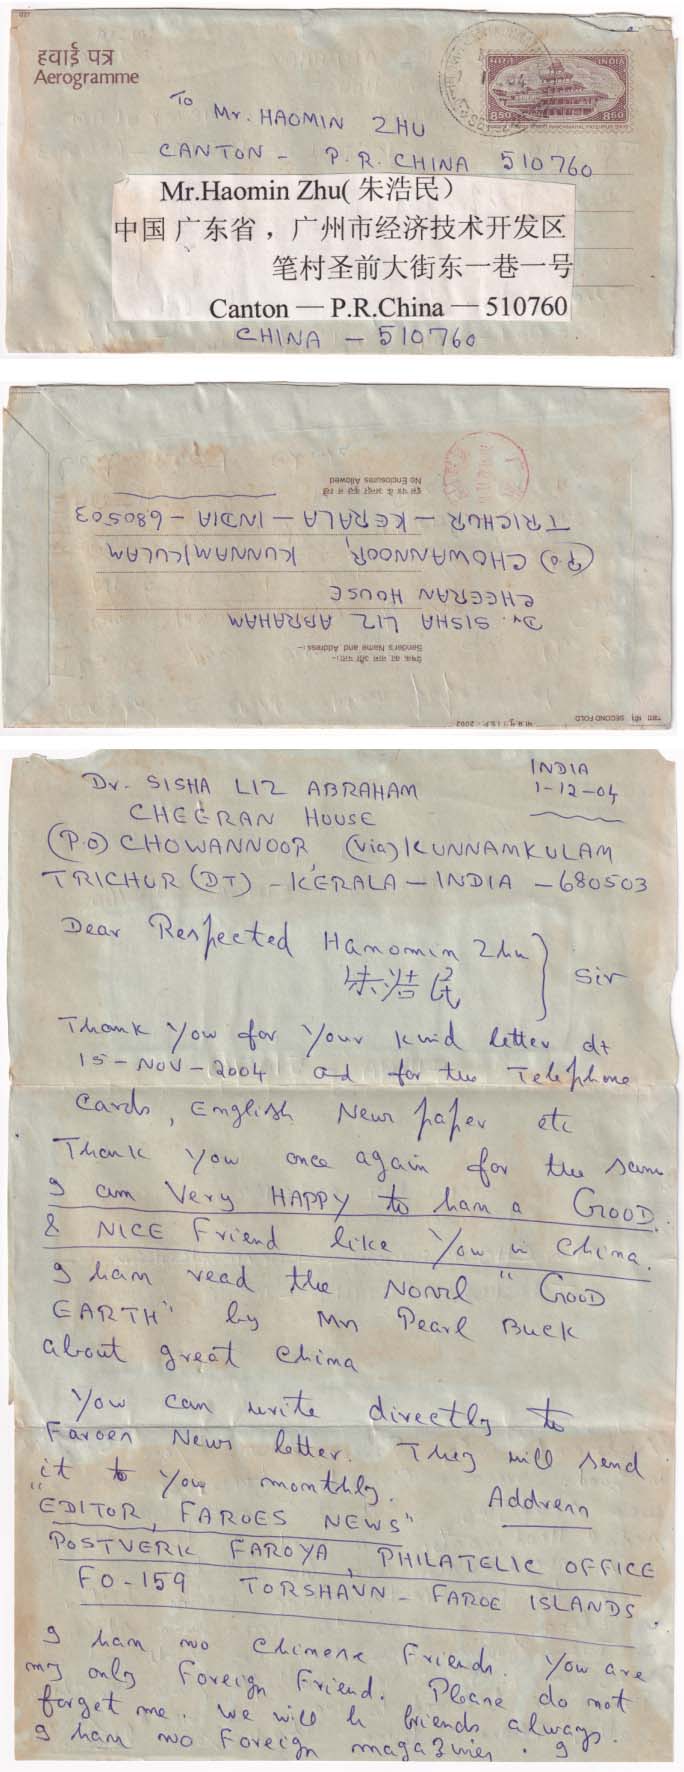 हवाई पत्र
Aerogramme
भारत INDIA
8.50 8.50
To Mr. HAOMIN ZHU
CANTON - P.R. CHINA 510760
Mr.Haomin Zhu( 朱浩民）
中国 广东省 ，广州市经济技术开发区
笔村圣前大街东一巷一号
Canton — P.R.China — 510760
CHINA - 510760
SECOND FOLD
प्रेषक का नाम और पता:-
Sender's Name and Address:-
Dr. SISHA LIZ ABRAHAM
CHEERAN HOUSE
(P.O) CHOWANNOOR, KUNNAMKULAM
TRICHUR - KERALA - INDIA - 680503
इस पत्र के अन्दर कुछ न रखें
No Enclosures Allowed
INDIA
1-12-04
Dr. SISHA LIZ ABRAHAM
CHEERAN HOUSE
(P.O) CHOWANNOOR, (Via) KUNNAMKULAM
TRICHUR (DT) - KERALA - INDIA - 680503
Dear Respected Hanomin Zhu } Sir
朱浩民
Thank You for Your kind letter dt
15-NOV-2004 and for the Telephone
Cards, English News paper etc
Thank you once again for the same
I am Very HAPPY to have a GOOD
& NICE Friend like You in China.
I have read the Novel "GOOD
EARTH" by Mrs Pearl Buck
about great China
You can write directly to
Faroes News letter. They will send
it to you monthly. Address
"EDITOR, FAROES NEWS"
POSTVERK FAROYA, PHILATELIC OFFICE
FO-159 TORSHAVN - FAROE ISLANDS.
I have no Chinese Friends. You are
my only Foreign Friend. Please do not
forget me. We will be friends always.
I have no Foreign magazines. I